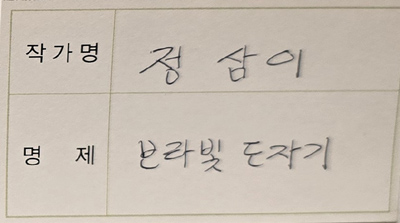 작가명 정삼이
명 제 보라빛 도자기